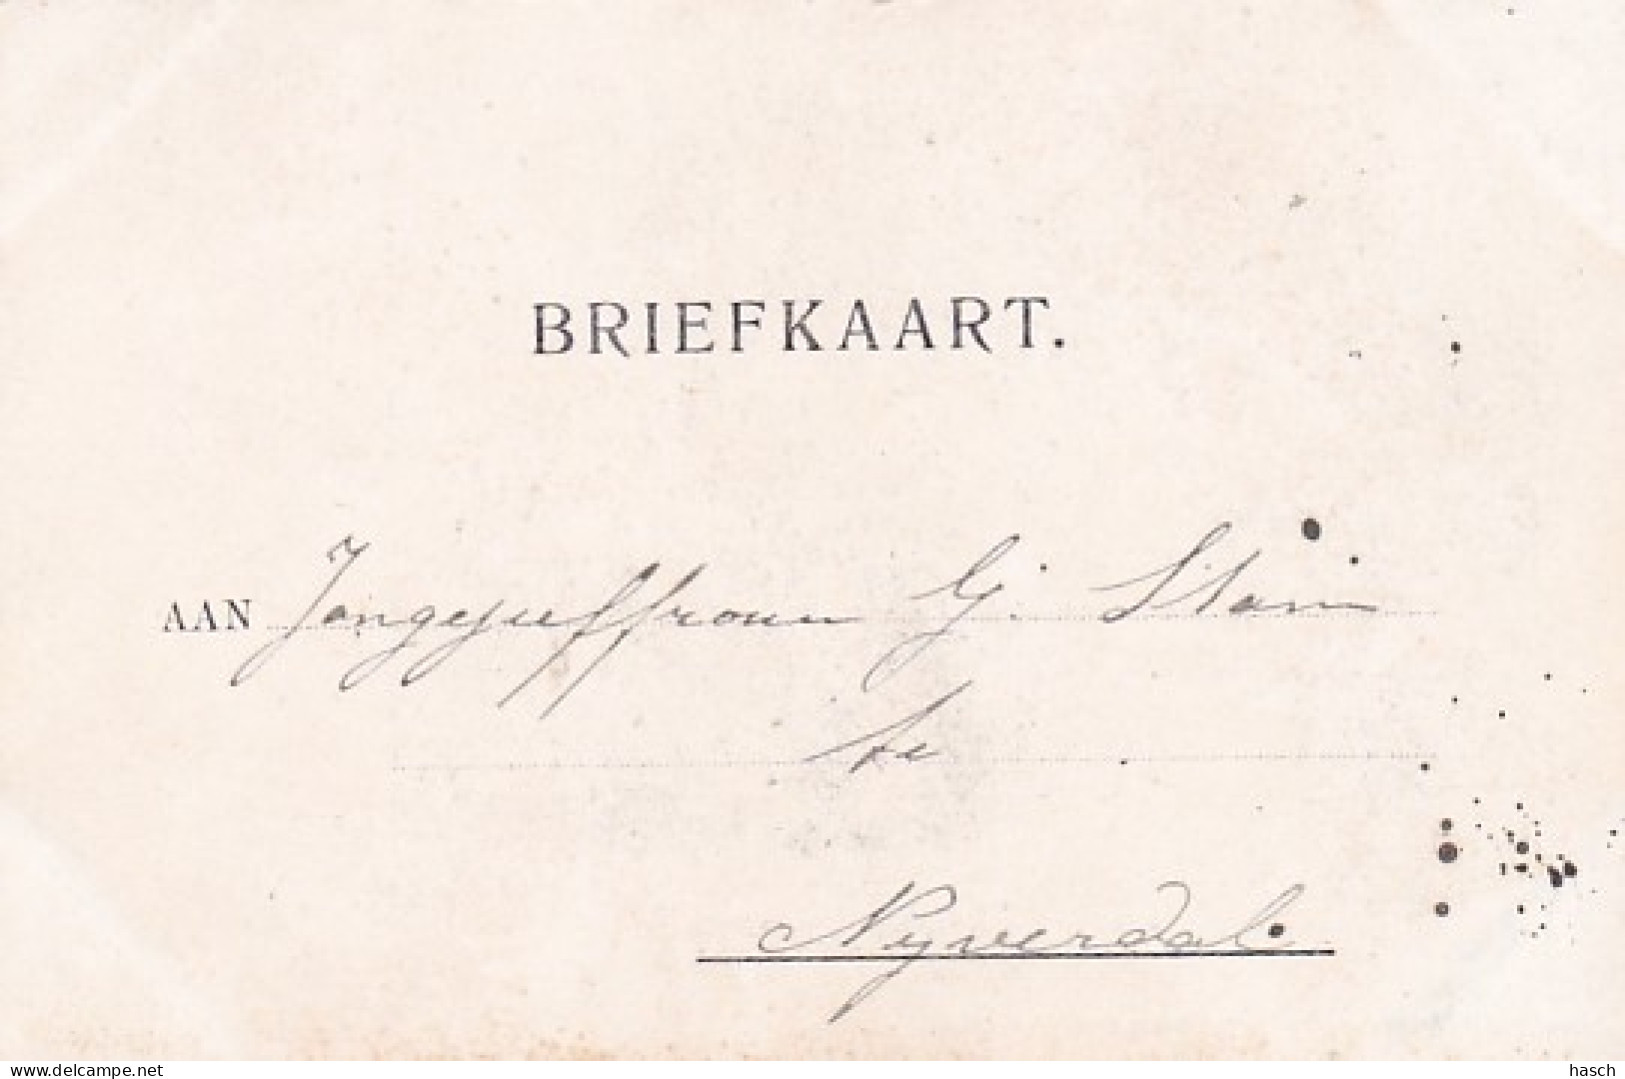 BRIEFKAART.
AAN Jongejuffrouw G. Stam
te
Nyverdal
delcampe.net
hasch